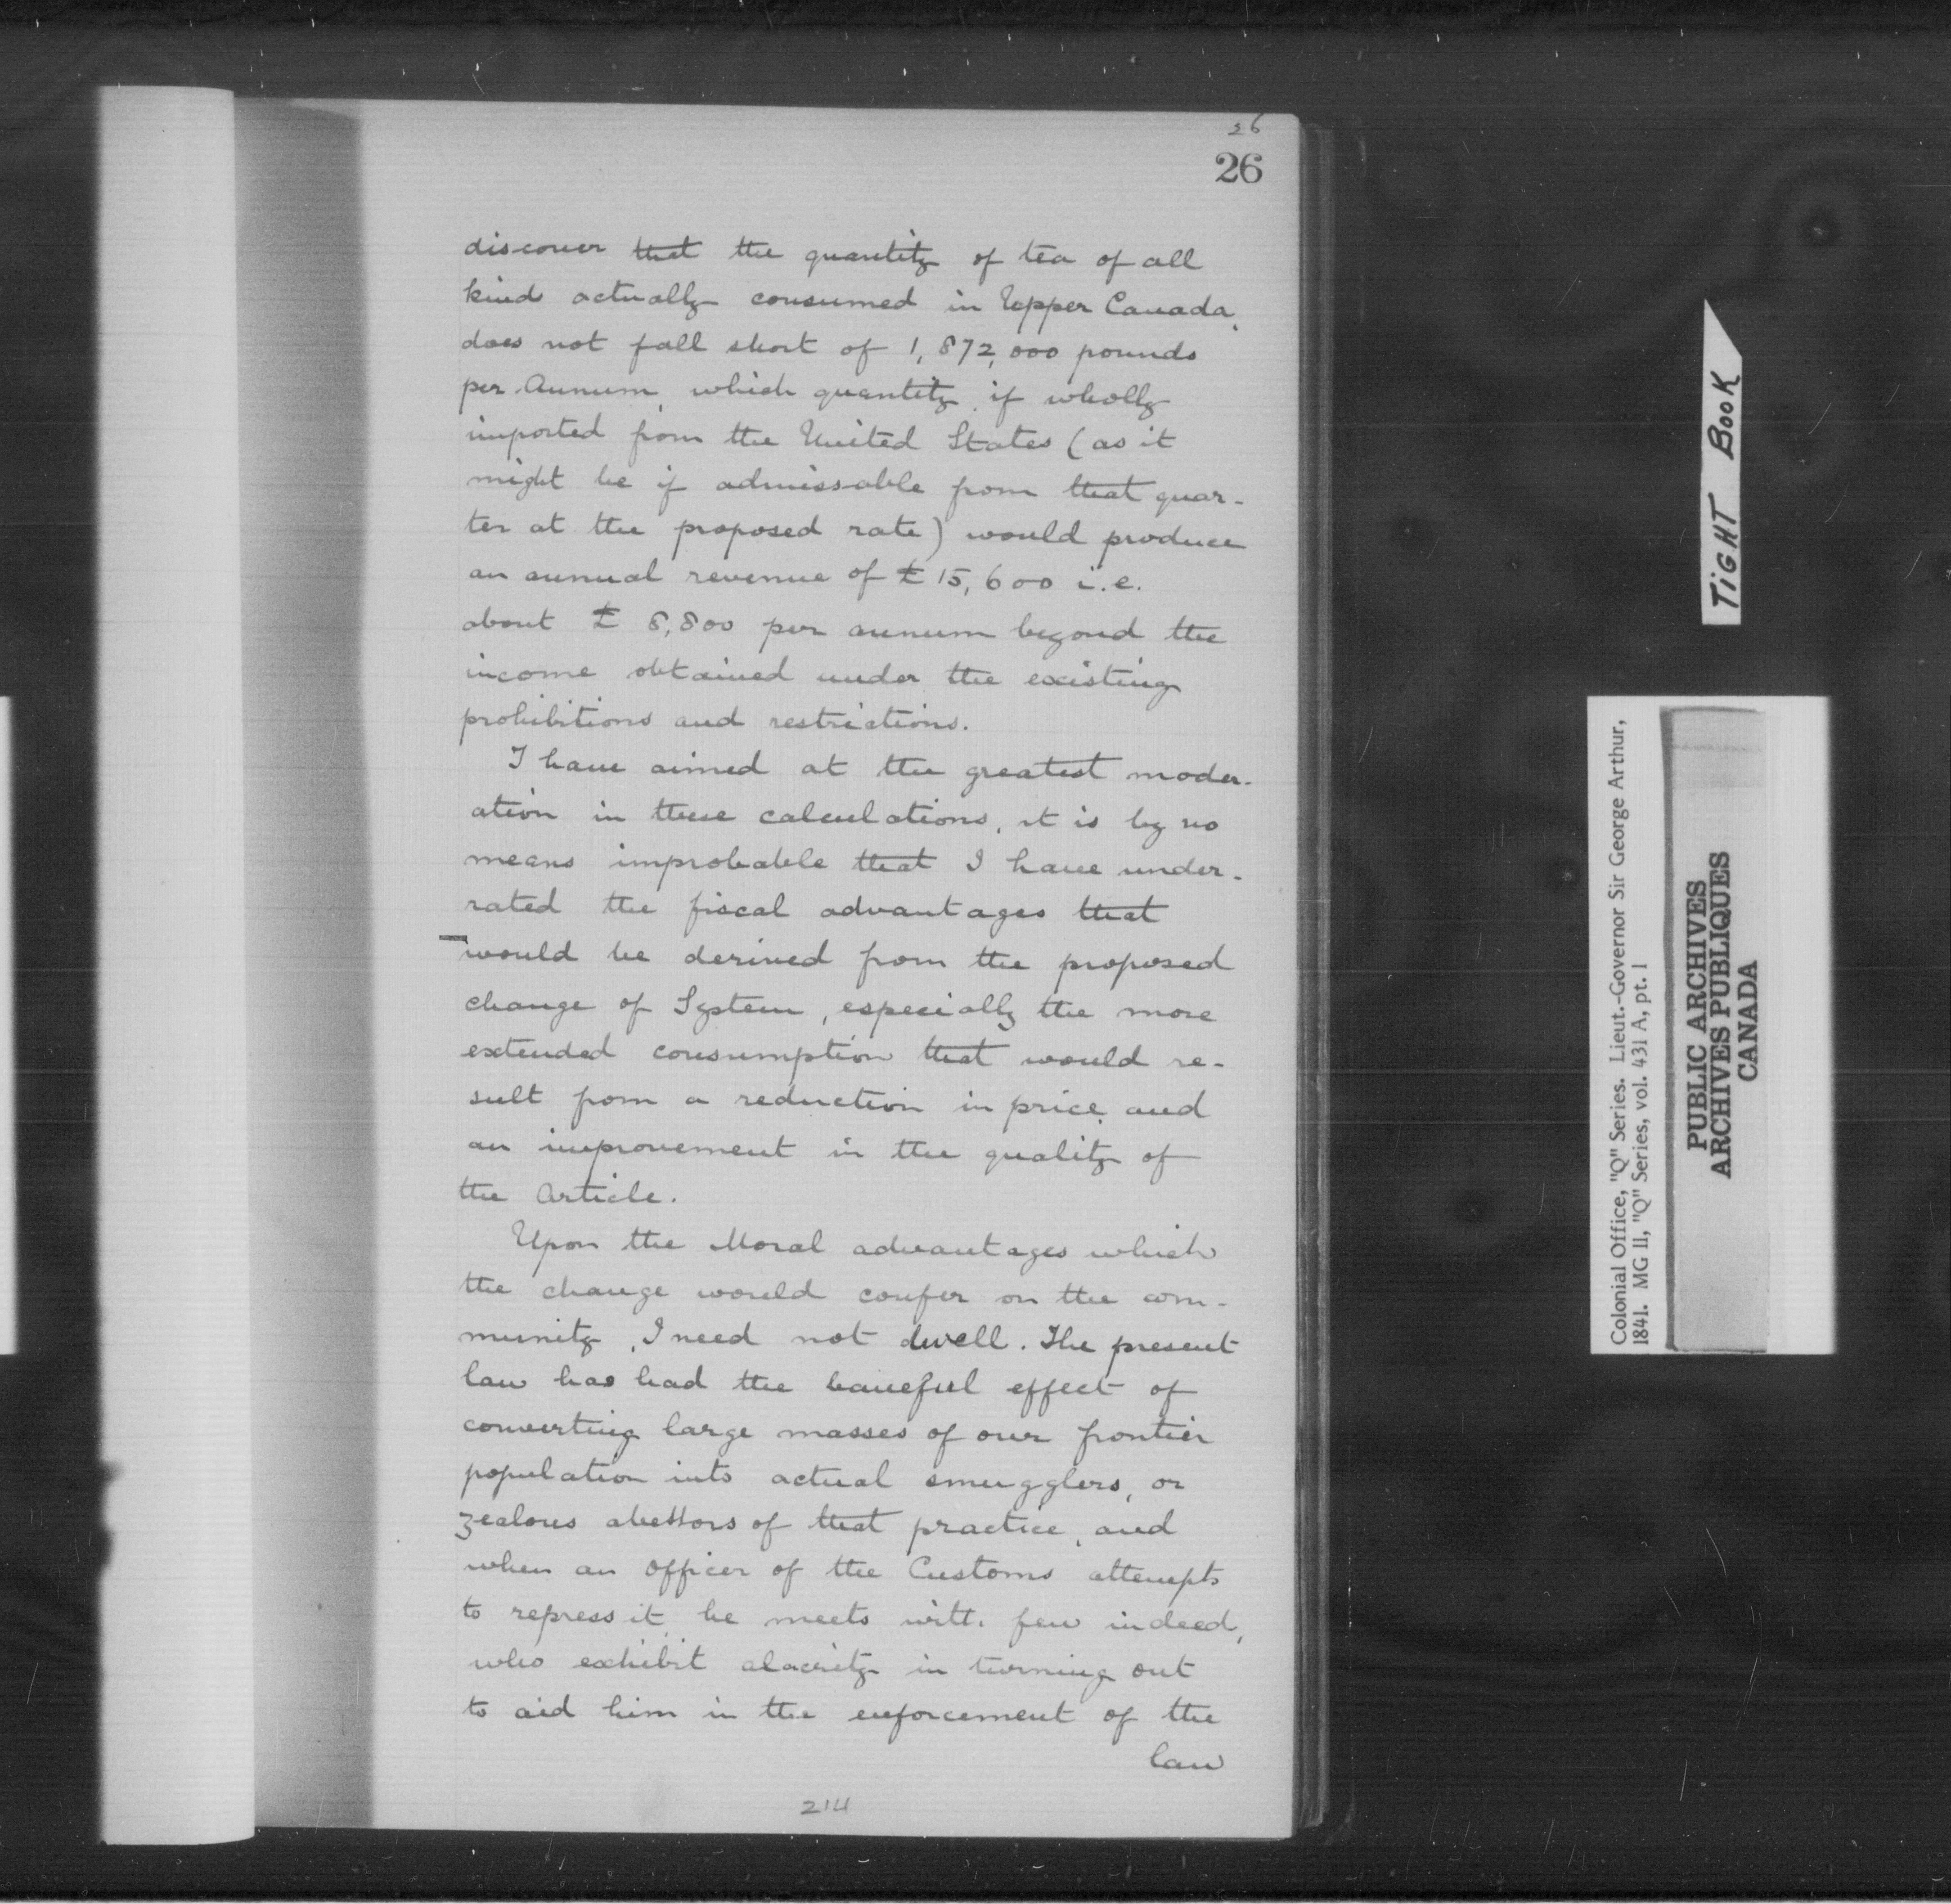 26
26
discover that the quantity of tea of all
kind actually consumed in Upper Canada,
does not fall short of 1,872,000 pounds
per Annum, which quantity, if wholly
imported from the United States (as it
might be if admissable from that quar-
ter at the proposed rate) would produce
an annual revenue of £15,600 i.e.
about £ 8,800 per annum beyond the
income obtained under the existing
prohibitions and restrictions.
I have aimed at the greatest moder-
ation in these calculations, it is by no
means improbable that I have under-
rated the fiscal advantages that
would be derived from the proposed
change of System, especially the more
extended consumption that would re-
sult from a reduction in price, and
an improvement in the quality of
the Article.
Upon the Moral advantages which
the change would confer on the com-
munity, I need not dwell. The present
law has had the baneful effect of
converting large masses of our frontier
population into actual smugglers, or
zealous abettors of that practice, and
when an Officer of the Customs attempts
to repress it, he meets with few indeed,
who exhibit alacrity in turning out
to aid him in the enforcement of the
law
214
TiGHT BooK
Colonial Office, "Q" Series. Lieut.-Governor Sir George Arthur,
1841. MG 11, "Q" Series, vol. 431 A, pt. 1
PUBLIC ARCHIVES
ARCHIVES PUBLIQUES
CANADA